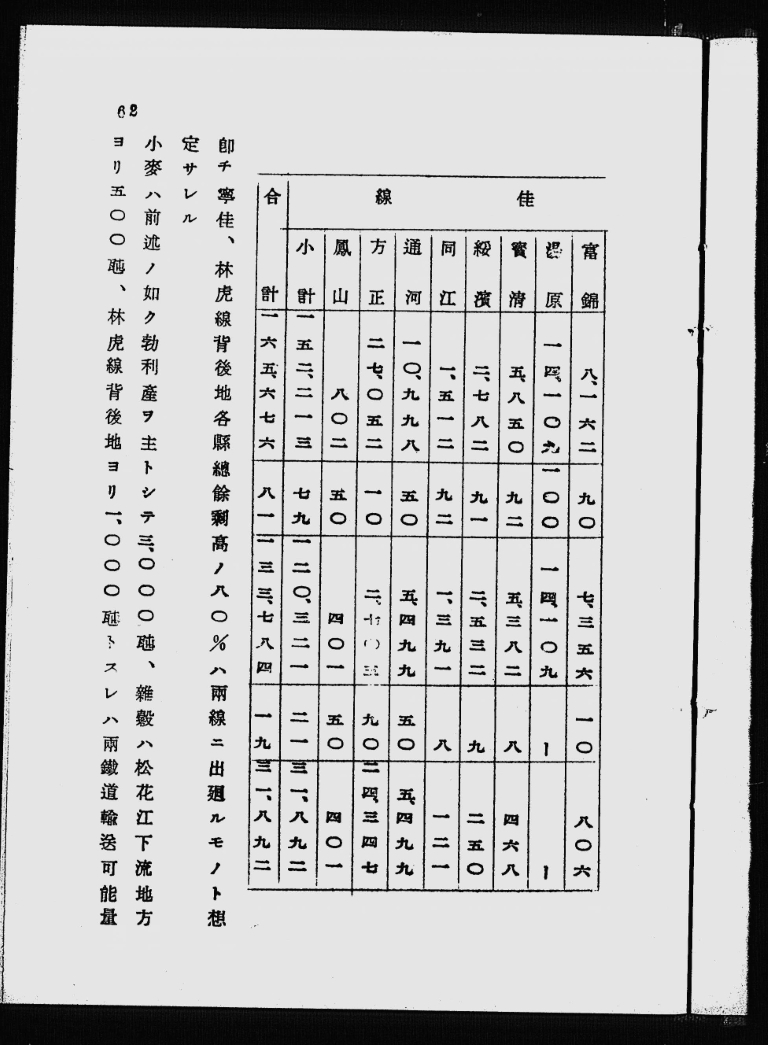 佳線
富錦 八、一六二 九〇 七、三五六 一〇 八〇六
湯原 一四、一〇九 一〇〇 一四、一〇九 ー ー
寶清 五、八五〇 九二 五、三八二 八 四六八
綏濱 二、七八二 九一 二、五三二 九 二五〇
同江 一、五一二 九二 一、三九一 八 一二一
通河 一〇、九九八 五〇 五、四九九 五〇 五、四九九
方正 二七、〇五二 一〇 二、七〇五 九〇 二四、三四七
鳳山 八〇二 五〇 四〇一 五〇 四〇一
小計 一五二、二一三 七九 一二〇、三二一 二一 三一、八九二
合計 一六五、六七六 八一 一三三、七八四 一九 三一、八九二
卽チ寧佳、林虎線背後地各縣總餘剩高ノ八〇%ハ兩線ニ出廻ルモノト想
定サレル
小麥ハ前述ノ如ク勃利產ヲ主トシテ三、〇〇〇瓲、雜穀ハ松花江下流地方
ヨリ五〇〇瓲、林虎線背後地ヨリ一、〇〇〇瓲トスレハ兩鐵道輸送可能量
62